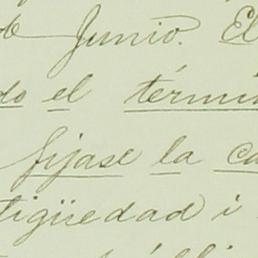 Junio. El
el térmi
fijase la ca
tigüedad i